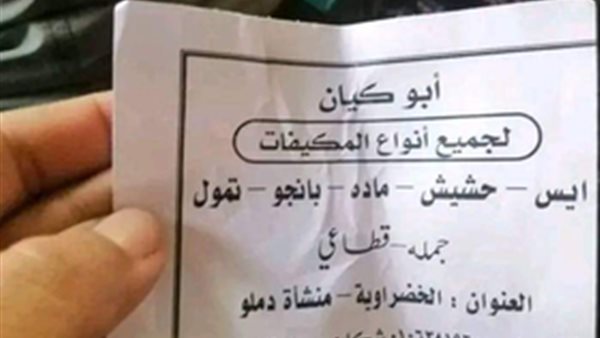 أبو كيان
لجميع أنواع المكيفات
ايس - حشيش - ماده - بانجو - تمول
جمله - قطاعي
العنوان : الخضراوية - منشأة دملو